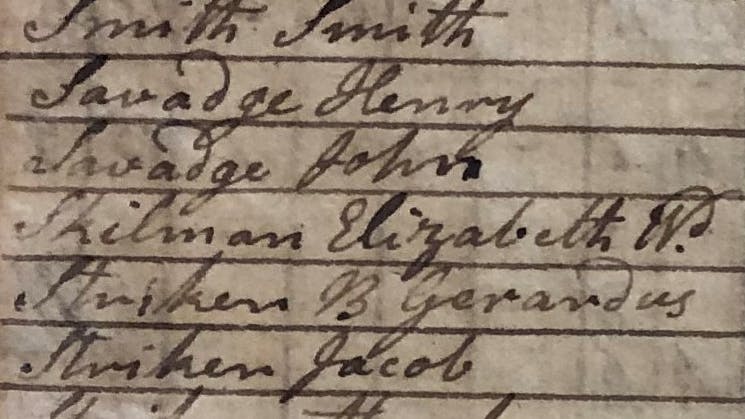 Smith Smith
Savadge Henry
Savadge John
Skilman Elizabeth Wd.
Striken B Gerardus
Striken Jacob